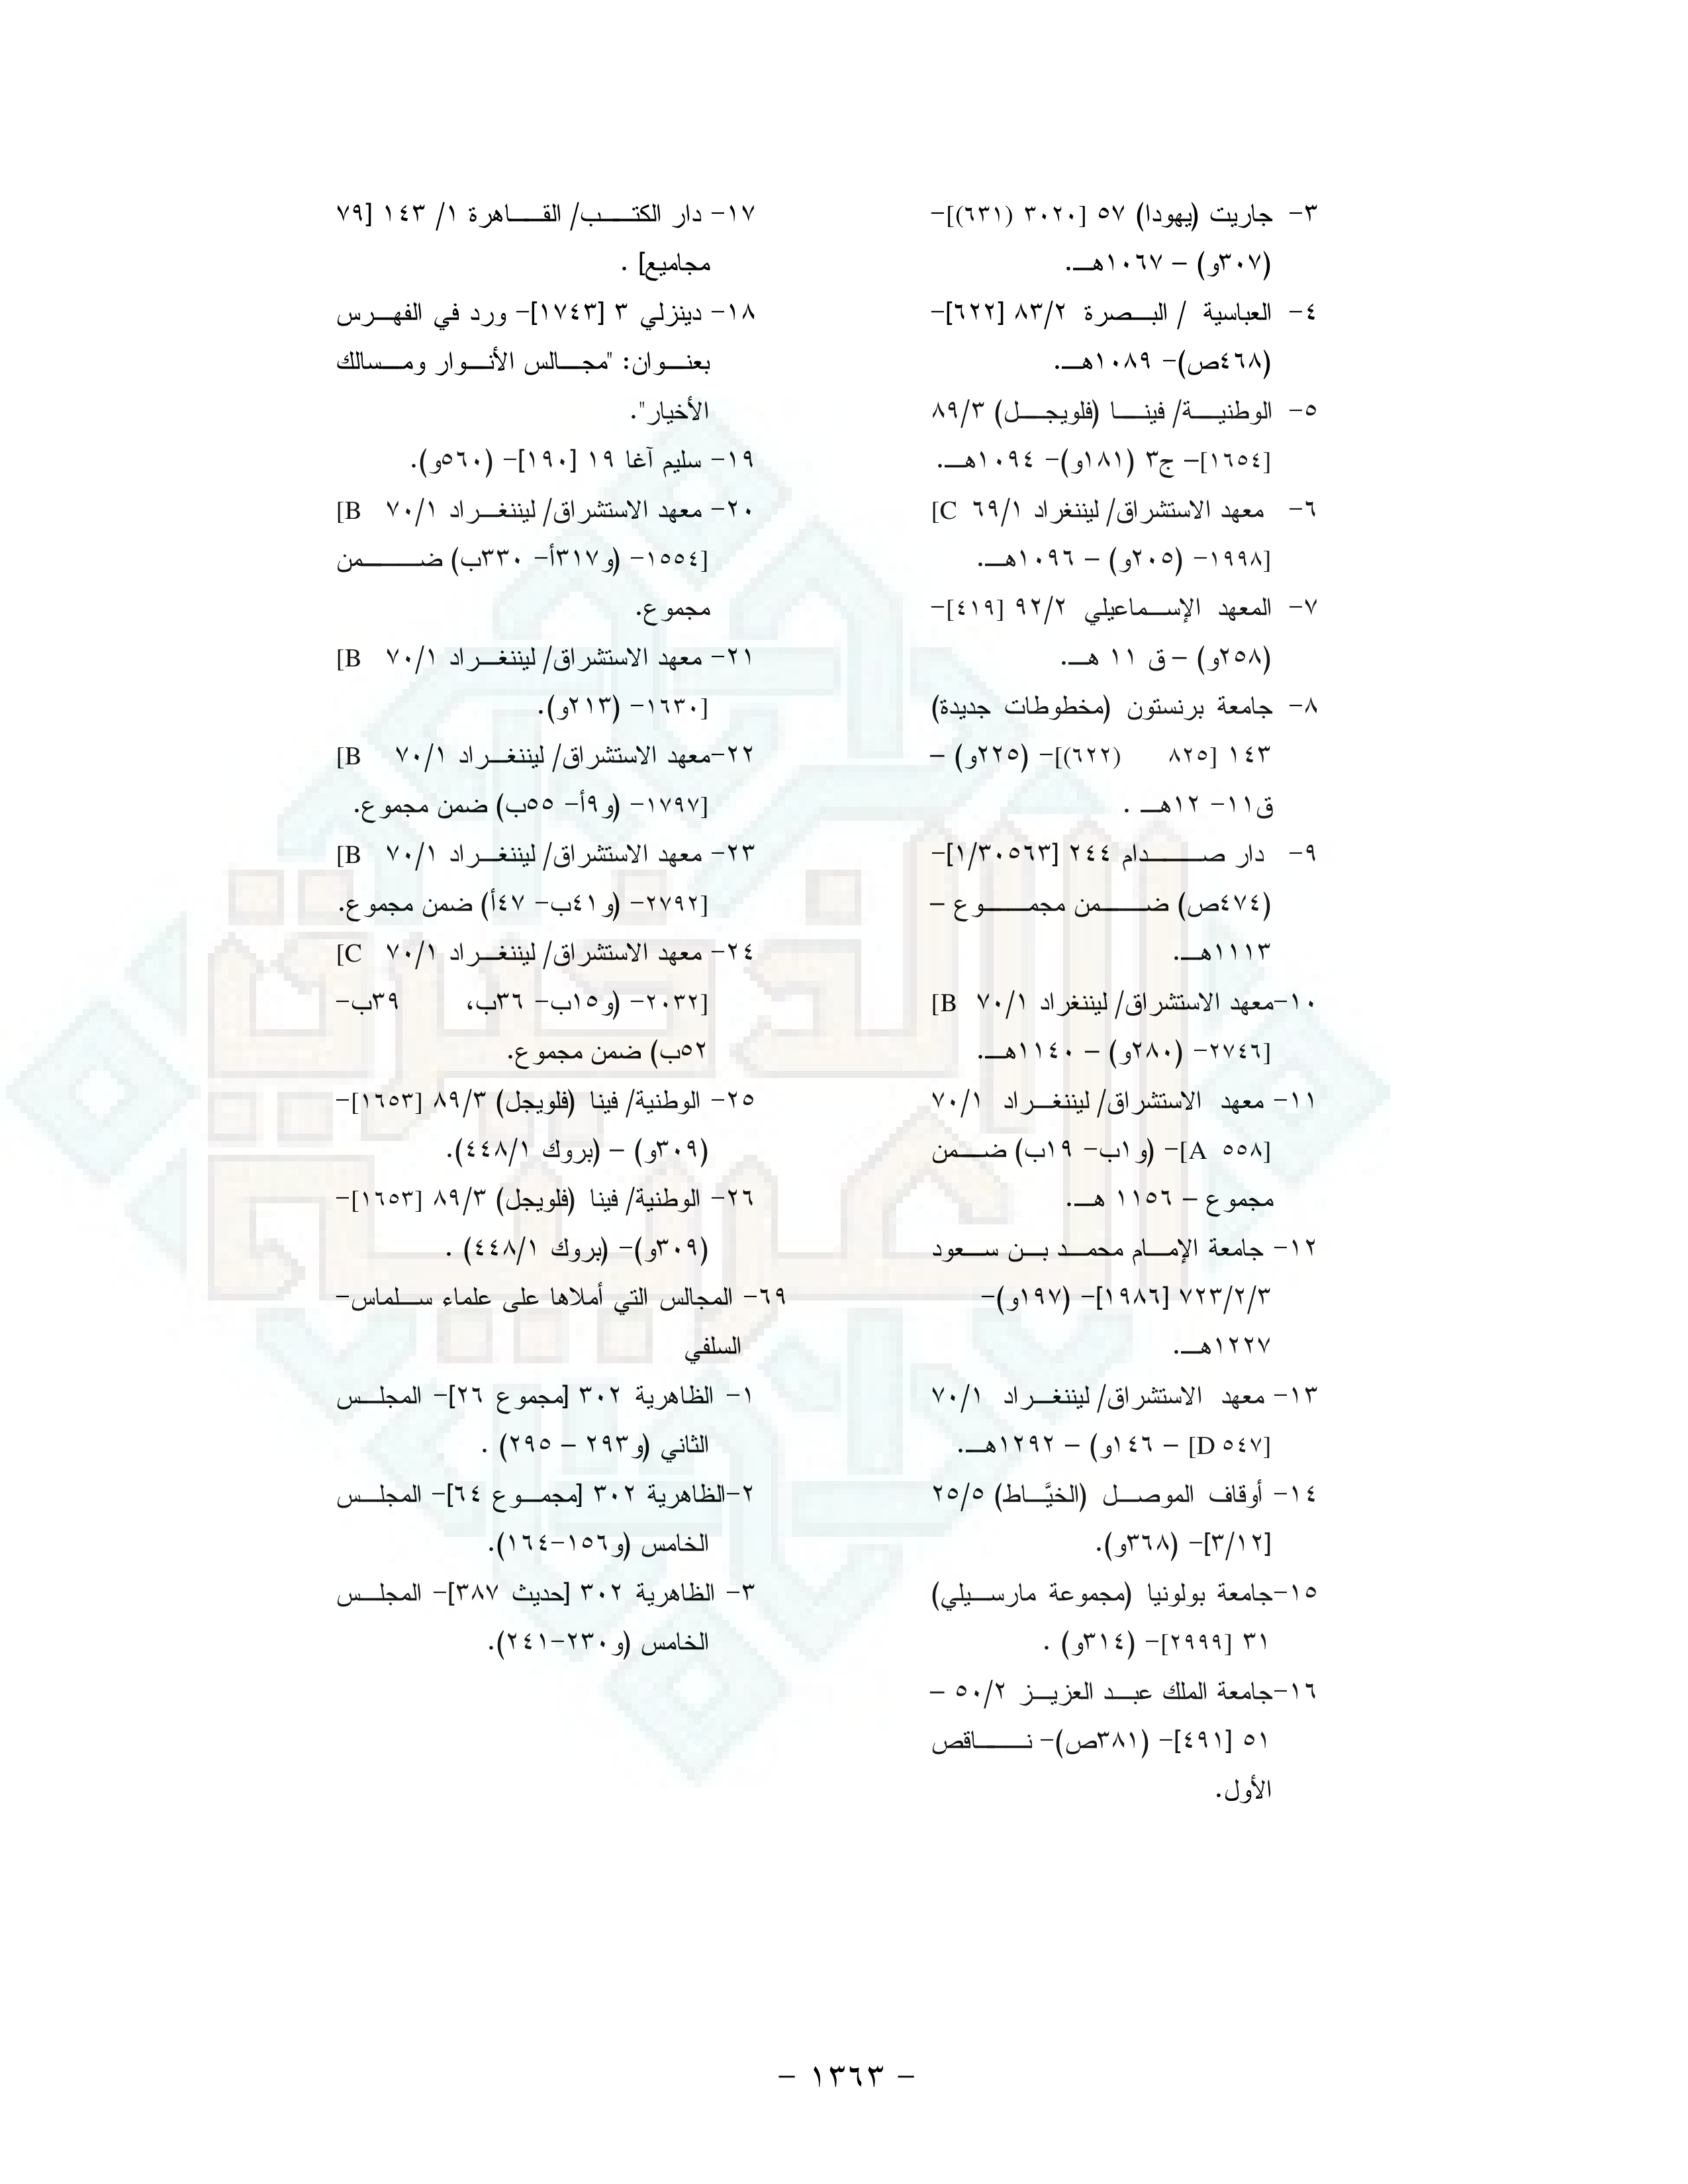 ٣- جاريت (يهودا) ٥٧ [٣٠٢٠ (٦٣١)]-
(٣٠٧و) – ١٠٦٧هـ.
٤- العباسية / البصرة ٨٣/٢ [٦٢٢]-
(٤٦٨ص)- ١٠٨٩هـ.
٥- الوطنية/ فينا (فلويجل) ٨٩/٣
[١٦٥٤]– ج٣ (١٨١و)- ١٠٩٤هـ.
٦- معهد الاستشراق/ ليننغراد ٦٩/١ [C
١٩٩٨]- (٢٠٥و) – ١٠٩٦هـ.
٧- المعهد الإسماعيلي ٩٢/٢ [٤١٩]-
(٢٥٨و) – ق ١١ هـ.
٨- جامعة برنستون (مخطوطات جديدة)
١٤٣ [٨٢٥ (٦٢٢)]- (٢٢٥و) –
ق١١- ١٢هـ .
٩- دار صدام ٢٤٤ [١/٣٠٥٦٣]-
(٤٧٤ص) ضمن مجموع –
١١١٣هـ.
١٠-معهد الاستشراق/ ليننغراد ٧٠/١ [B
٢٧٤٦]- (٢٨٠و) – ١١٤٠هـ.
١١- معهد الاستشراق/ ليننغراد ٧٠/١
[A ٥٥٨]- (و١ب- ١٩ب) ضمن
مجموع – ١١٥٦ هـ.
١٢- جامعة الإمام محمد بن سعود
٧٢٣/٢/٣ [١٩٨٦]- (١٩٧و)-
١٢٢٧هـ.
١٣- معهد الاستشراق/ ليننغراد ٧٠/١
[D ٥٤٧] – ١٤٦و) – ١٢٩٢هـ.
١٤- أوقاف الموصل (الخيَّاط) ٢٥/٥
[٣/١٢]- (٣٦٨و).
١٥-جامعة بولونيا (مجموعة مارسيلي)
٣١ [٢٩٩٩]- (٣١٤و) .
١٦-جامعة الملك عبد العزيز ٥٠/٢ –
٥١ [٤٩١]- (٣٨١ص)- ناقص
الأول.
١٧- دار الكتب/ القاهرة ١/ ١٤٣ [٧٩
مجاميع] .
١٨- دينزلي ٣ [١٧٤٣]- ورد في الفهرس
بعنوان: "مجالس الأنوار ومسالك
الأخيار".
١٩- سليم آغا ١٩ [١٩٠]- (٥٦٠و).
٢٠- معهد الاستشراق/ ليننغراد ٧٠/١ [B
١٥٥٤]- (و٣١٧أ- ٣٣٠ب) ضمن
مجموع.
٢١- معهد الاستشراق/ ليننغراد ٧٠/١ [B
١٦٣٠]- (٢١٣و).
٢٢-معهد الاستشراق/ ليننغراد ٧٠/١ [B
١٧٩٧]- (و٩أ- ٥٥ب) ضمن مجموع.
٢٣- معهد الاستشراق/ ليننغراد ٧٠/١ [B
٢٧٩٢]- (و٤١ب- ٤٧أ) ضمن مجموع.
٢٤- معهد الاستشراق/ ليننغراد ٧٠/١ [C
٢٠٣٢]- (و١٥ب- ٣٦ب، ٣٩ب-
٥٢ب) ضمن مجموع.
٢٥- الوطنية/ فينا (فلويجل) ٨٩/٣ [١٦٥٣]-
(٣٠٩و) – (بروك ٤٤٨/١).
٢٦- الوطنية/ فينا (فلويجل) ٨٩/٣ [١٦٥٣]-
(٣٠٩و)- (بروك ٤٤٨/١) .
٦٩- المجالس التي أملاها على علماء سلماس-
السلفي
١- الظاهرية ٣٠٢ [مجموع ٢٦]- المجلس
الثاني (و٢٩٣ – ٢٩٥) .
٢-الظاهرية ٣٠٢ [مجموع ٦٤]- المجلس
الخامس (و١٥٦-١٦٤).
٣- الظاهرية ٣٠٢ [حديث ٣٨٧]- المجلس
الخامس (و٢٣٠-٢٤١).
- ١٣٦٣ -